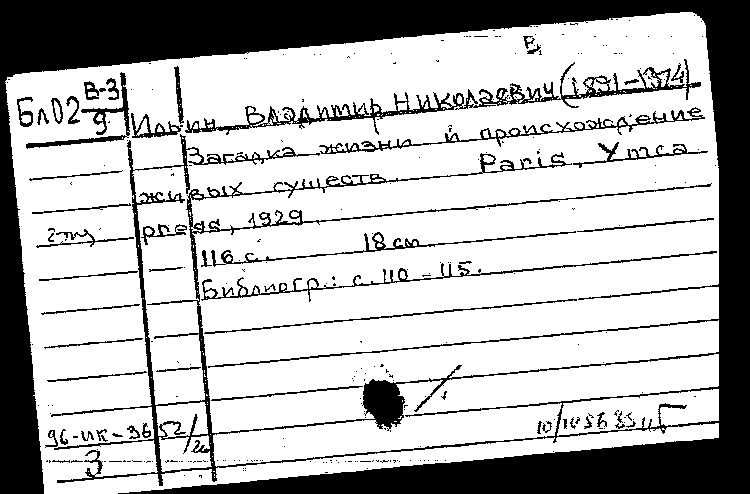 В
Бл02 В-3/9
Ильин, Владимир Николаевич (1891-1974)
Загадка жизни и происхождение
живых существ. Paris, Ymca
2 экз press, 1929.
116 с. 18 см
Библиогр.: с. 110-115.
96-ИК-3652/
3